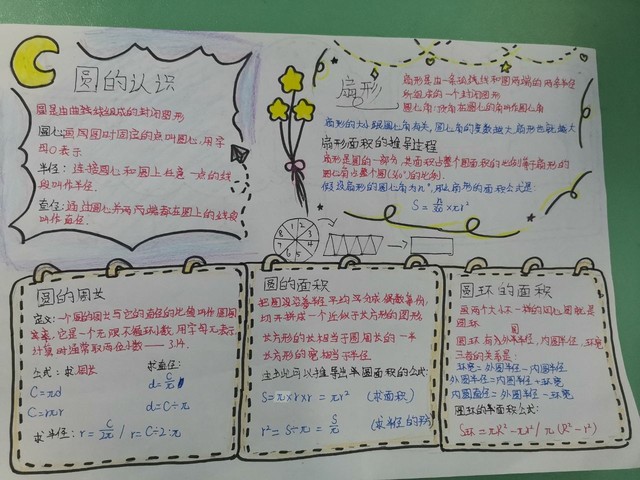 圆的认识
圆是由曲线线组成的封闭图形
圆心:画圆时固定的点叫圆心,用字
母O表示
半径:连接圆心和圆上任意一点的线
段叫作半径.
直径:通过圆心并两端都在圆上的线段
叫作直径.
扇形
扇形是由一条弧线和圆两端的两条半径
所组成的一个封闭图形
圆心角:顶角在圆心的角叫作圆心角
扇形的大小跟圆心角有关,圆心角的度数越大,扇形也就越大
扇形面积的推导过程
扇形是圆的一部分,其面积占整个圆面积的比例等于扇形的
圆心角占整个圆(360°)的比例.
假设扇形的圆心角为n°,那么扇形的面积公式是:
S=n/360×πr²
1 2 3 4 5 6 7 8
圆的周长
定义:一个圆的周长与它的直径的比值叫作圆周
率,它是一个无限不循环小数.用字母π表示
计算时通常取两位小数——3.14.
公式:求周长
C=πd
C=2πr
求直径:
d=C/π
d=C÷π
求半径:r=C/2π/r=C÷2÷π
圆的面积
把圆沿半径平均分成偶数等份,
切开拼成一个近似于长方形的图形.
长方形的长相当于圆周长的一半
长方形的宽相当于半径
所以可以推导出半圆面积的公式:
S=π×r×r=πr²(求面积)
r²=S÷π=S/π(求半径的
圆环的面积
两个大小不一样的同心圆就是
圆环
圆环有外圆半径,内圆半径,环宽
三者的关系是:
环宽=外圆半径-内圆半径
外圆半径=内圆半径+环宽
内圆直径=外圆半径-环宽
圆环的面积公式:
S环=πR²-πr²/π(R²-r²)